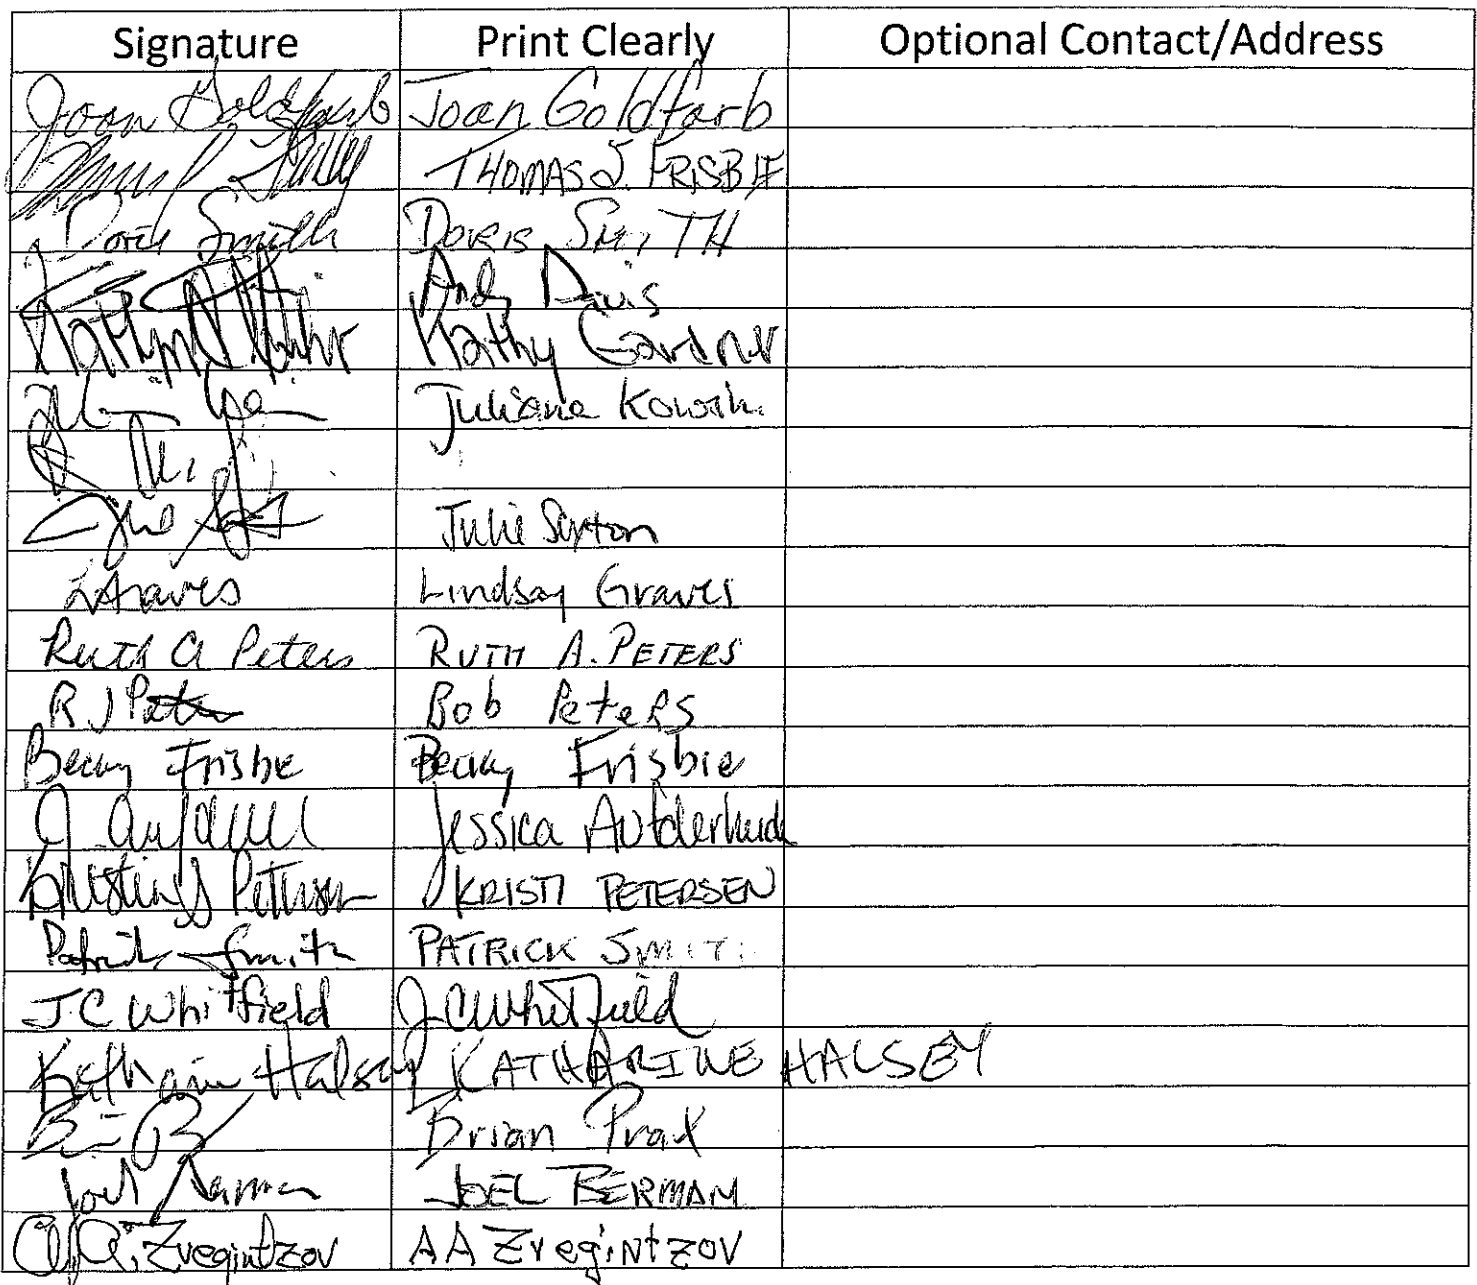 Signature Print Clearly Optional Contact/Address
Joan Goldfarb Joan Goldfarb
THOMAS J. FRISBIE
Doris Smith DORIS SMITH
Andy Davis
Kathy Gardner
Juliane
Julie Sexton
LGraves Lindsay Graves
Ruth A Peters RUTH A. PETERS
R J Peters Bob Peters
Becky Frisbie Becky Frisbie
J Jessica
Petersen KRISTI PETERSEN
Patrick Smith PATRICK SMIT
J.C Whitfield J C Whitfield
Katharine Halsey KATHARINE HALSEY
Brian Prax
Joel Berman JOEL BERMAN
A.A. Zvegintzov A A Zvegintzov